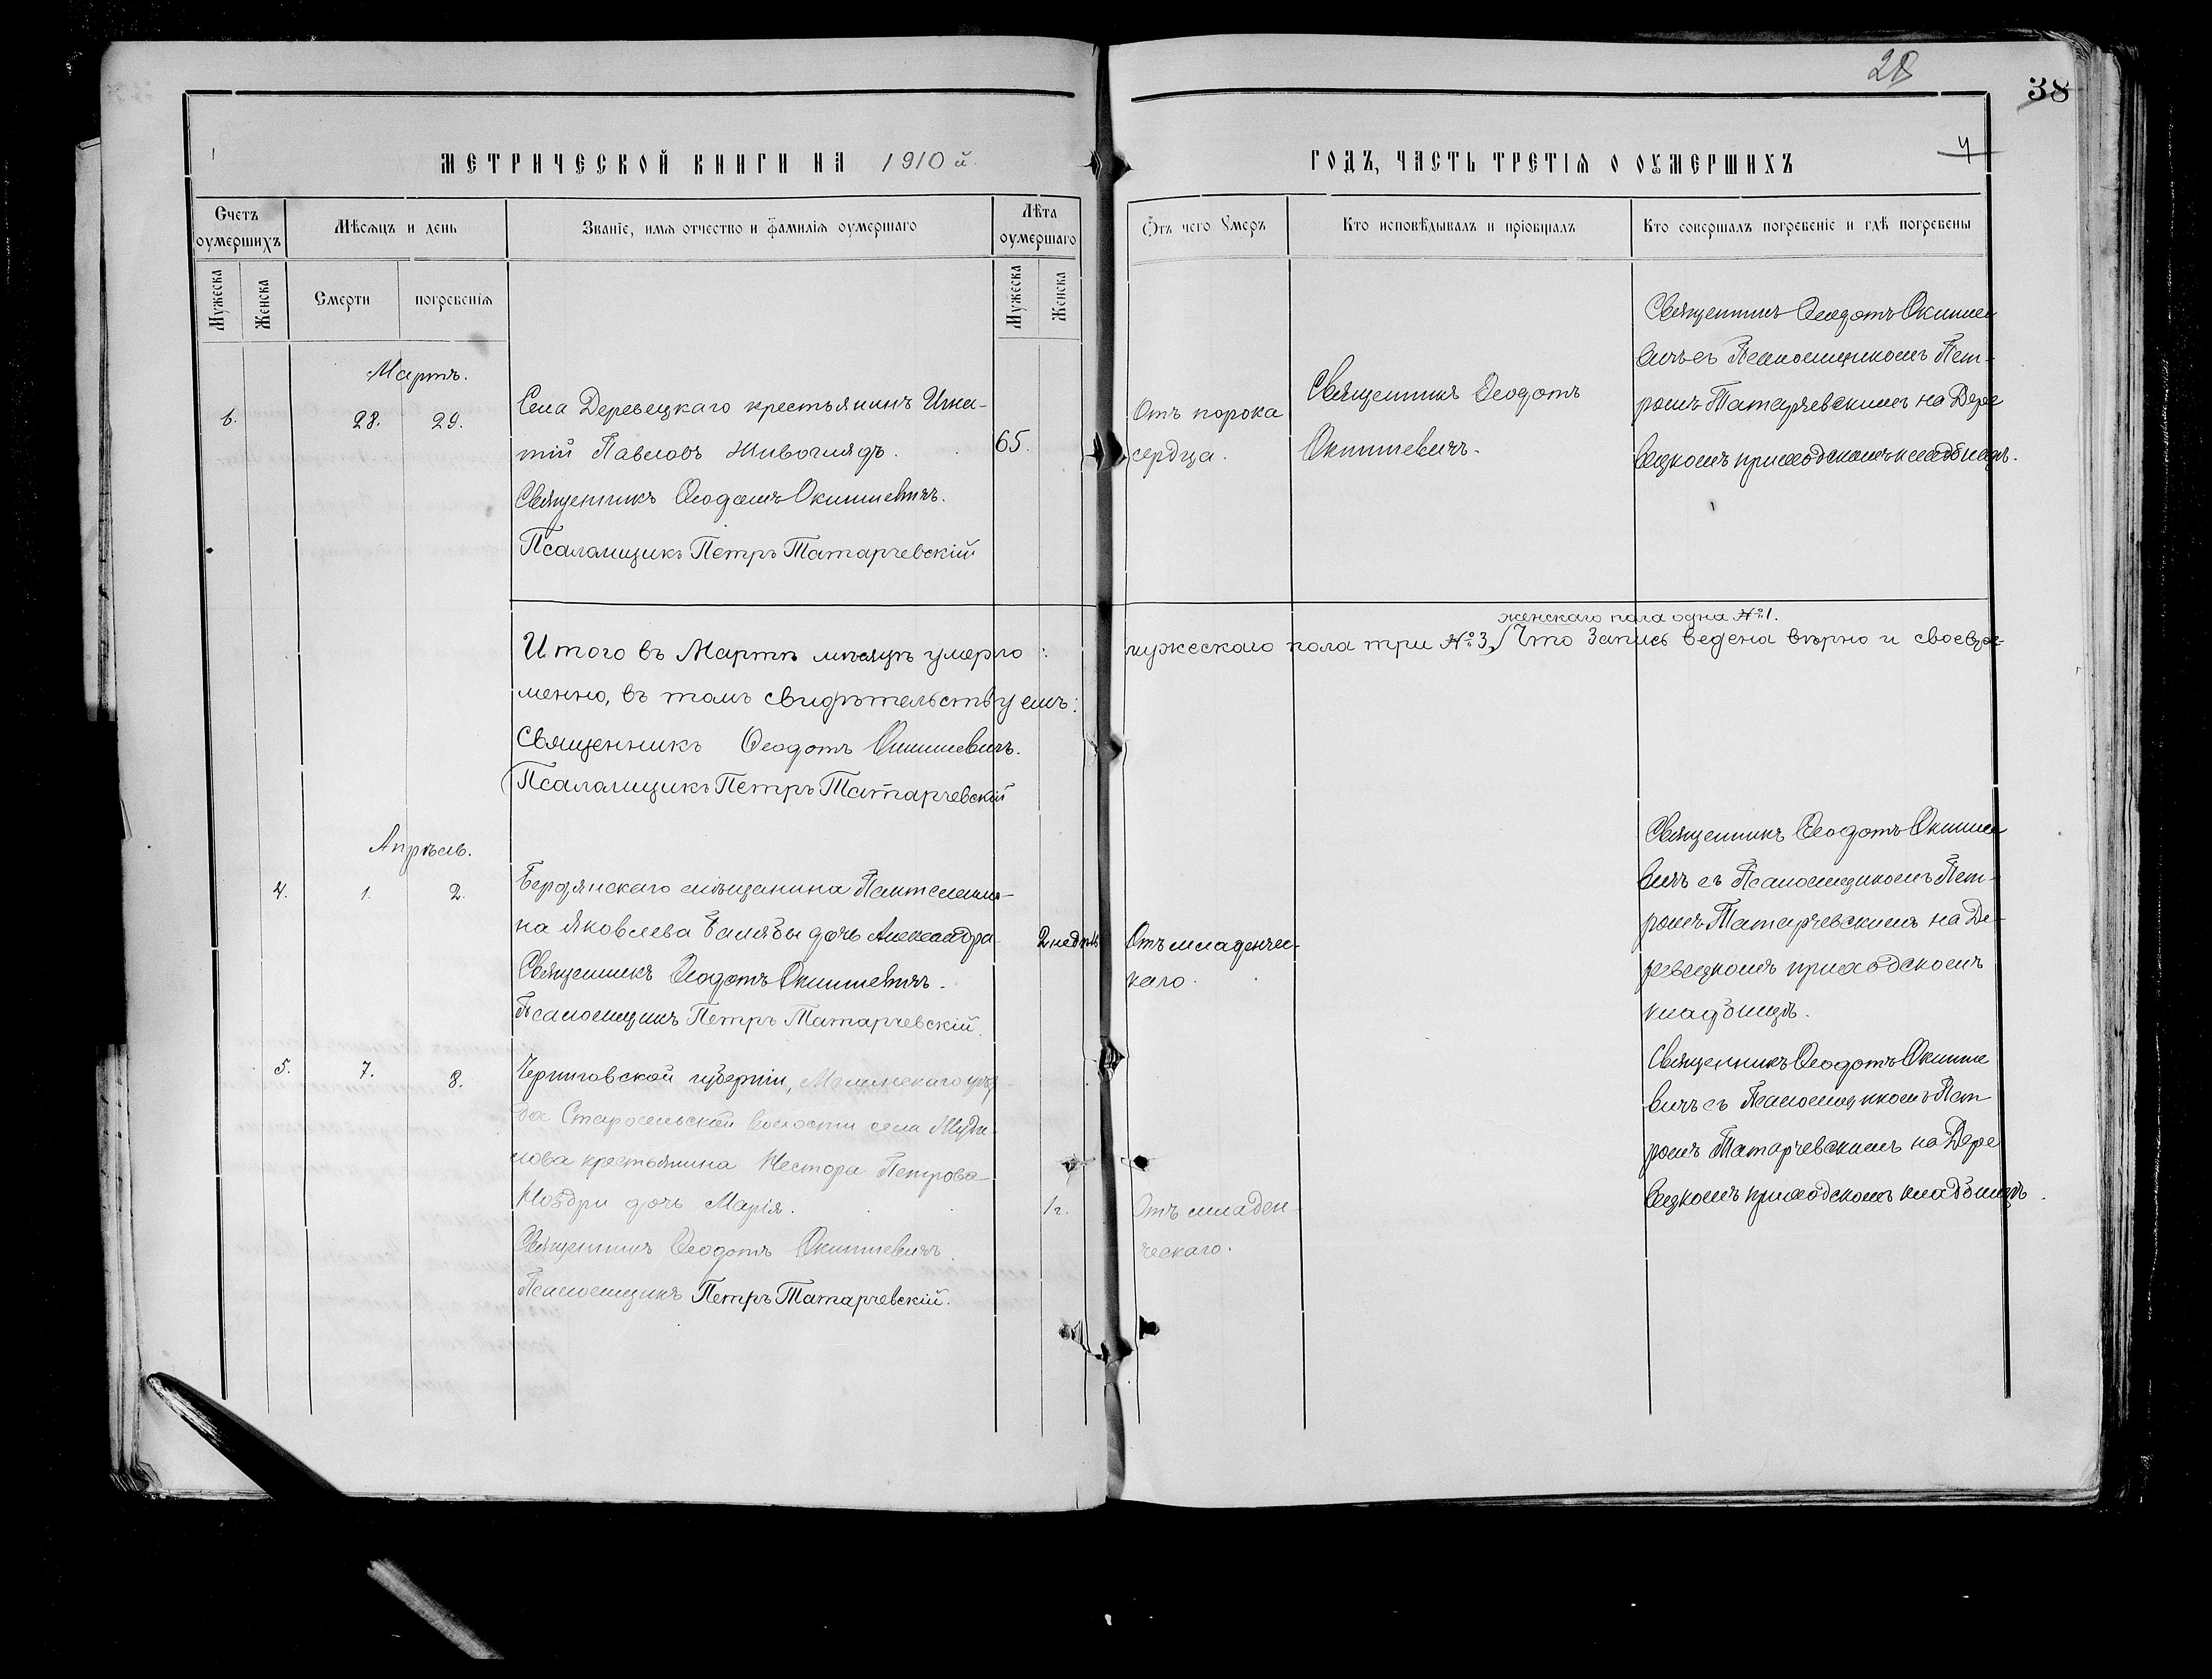 28
38
4
МЕТРИЧЕСКОЙ КНИГИ НА 1910 й.
ГОДЪ, ЧАСТЬ ТРЕТІЯ О ОУМЕРШИХЪ
Счетъ оумершихъ
Мѣсяцъ и день
Званіе, имя отчество и фамилія оумершаго
Лѣта оумершаго
Отъ чего Умеръ
Кто исповѣдывалъ и пріобщалъ
Кто совершалъ погребеніе и гдѣ погребены
Мужеска
Женска
Смерти
погребенія
Мужеска
Женска
Мартъ.
6.
28.
29.
Села Деревецкаго крестьянинъ Игна-
тій Павловъ Живоглядъ.
65.
Священникъ Ѳеодотъ Окиншевичъ.
Псаломщикъ Петръ Татарчевскій
Отъ порока
сердца.
Священникъ Ѳеодотъ
Окиншевичъ.
Священникъ Ѳеодотъ Окинше
вичъ съ Псаломщикомъ Пет-
ромъ Татарчевскимъ на Дере
вецкомъ приходскомъ кладбищѣ.
женскаго пола одна №1.
Итого въ Мартѣ мѣсяцѣ умерло: мужескаго пола три №3, Что запись ведена вѣрно и своевре-
менно, въ томъ свидѣтельствуемъ:
Священникъ Ѳеодотъ Окиншевичъ.
Псаломщикъ Петръ Татарчевскій
Апрѣль.
4.
1.
2.
Бердянскаго мѣщанина Пантелеимо-
на Яковлева дочь Александра
2 недѣль
Священникъ Ѳеодотъ Окиншевичъ.
Псаломщикъ Петръ Татарчевскій.
Отъ младенчес-
каго.
Священникъ Ѳеодотъ Окинше
вичъ съ Псаломщикомъ Пет-
ромъ Татарчевскимъ на Де-
ревецкомъ приходскомъ
кладбищѣ.
5.
7.
8.
Черниговской губерніи, Мглинскаго уѣз-
да Старосельской волости села
крестьянина Нестора Петрова
Ноздри дочь Марія.
1 г.
Священникъ Ѳеодотъ Окиншевичъ.
Псаломщикъ Петръ Татарчевскій.
Отъ младен-
ческаго.
Священникъ Ѳеодотъ Окинше
вичъ съ Псаломщикомъ Пет
ромъ Татарчевскимъ на Дере
вецкомъ приходскомъ кладбищѣ.